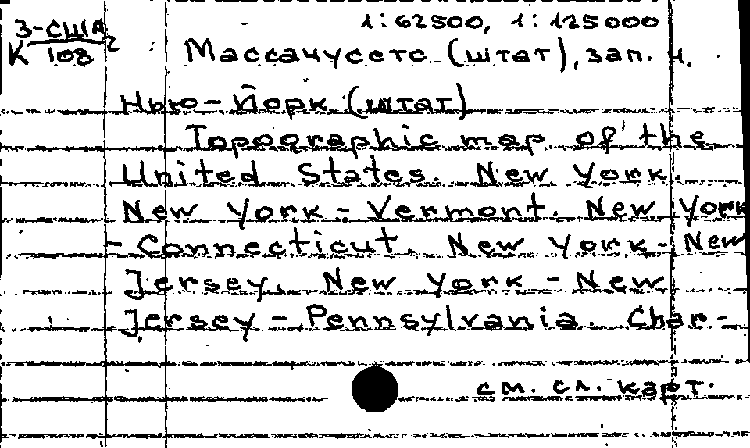 З-США 1:62500, 1:125000
К 108 2 Массачусетс (штат), зап. ч.
Нью-Йорк (штат)
Topographic map of the
United States. New York.
New York - Vermont. New York
- Connecticut. New York - New
Jersey. New York - New
Jersey - Pennsylvania. Char-
см. сл. карт.